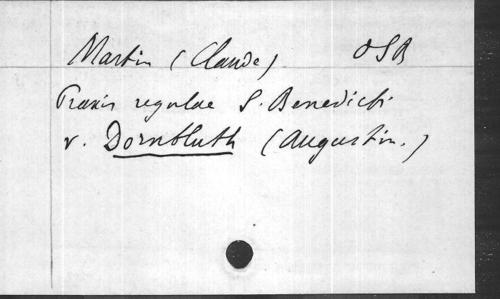 Martin (Claude) OSB
Praxis regulae S. Benedicti
v. Dornbluth (Augustin.)